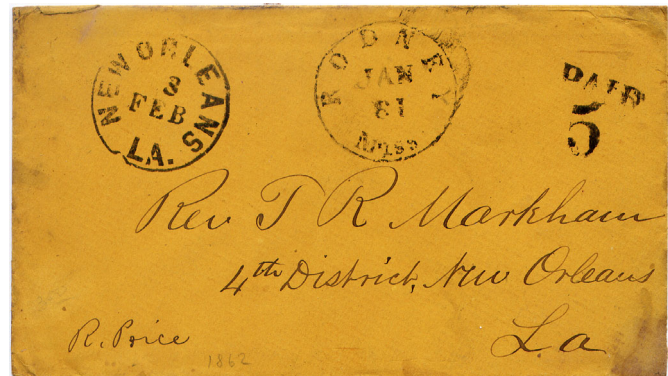 NEW ORLEANS
3
FEB
LA.
RODNEY
JAN
31
Miss
PAID
5
Rev T R Markham
4th District, New Orleans
La
R. Price
1862